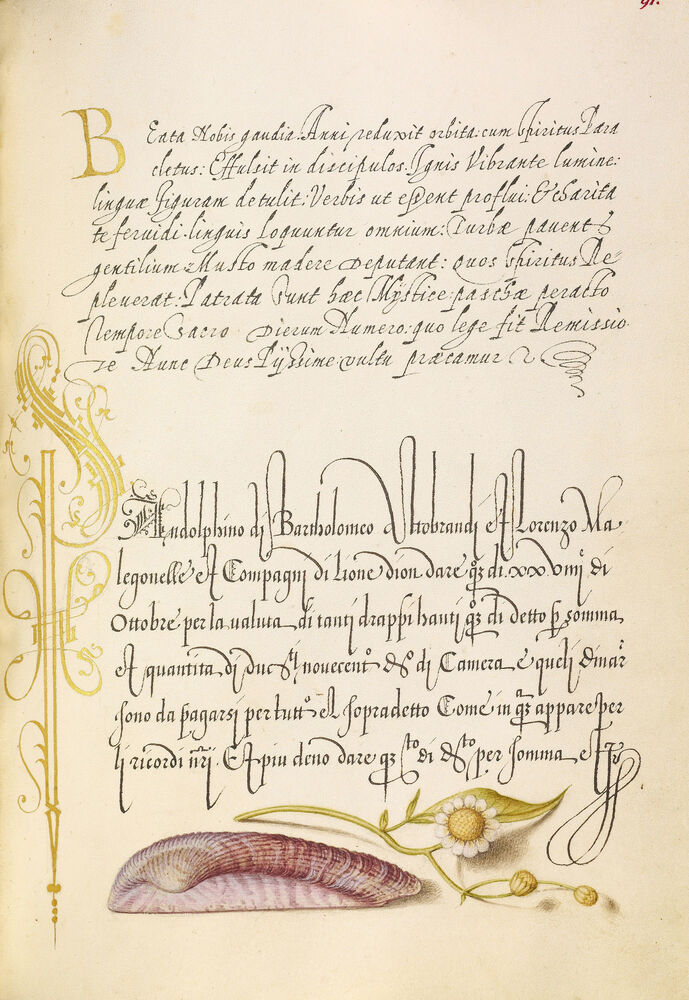 91.
Beata Nobis gaudia: Anni reduxit orbita: cum spiritus Para
cletus: Effulsit in discipulos. Ignis Vibrante lumine:
linguæ figuram detulit: Verbis ut essent proflui: & charita
te fervidi. linguis loquuntur omnium: Turbæ pavent
gentilium Musto madere Deputant: quos spiritus Re-
pleverat: Patrata sunt hæc Mystice: paschæ peracto
Tempore sacro Dierum Numero: quo lege fit Remissio
Te Nunc Deus Pijssime: vultu præcamur
Randolphino di Bartholomeo Attobrandi et Lorenzo Ma
legonelle et Compagni di Lione dion dare di xxviiij° di
Ottobre per la valuta di tanti drappi hauti di detto p somma
et quantita di novecent° di Camera e queli dimar
sono da pagarsi per tutt° el sopradetto Come in appare per
li ricordi nri. Et piu deno dare di per somma et